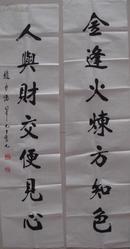 金逢火煉方知色
人與財交便見心